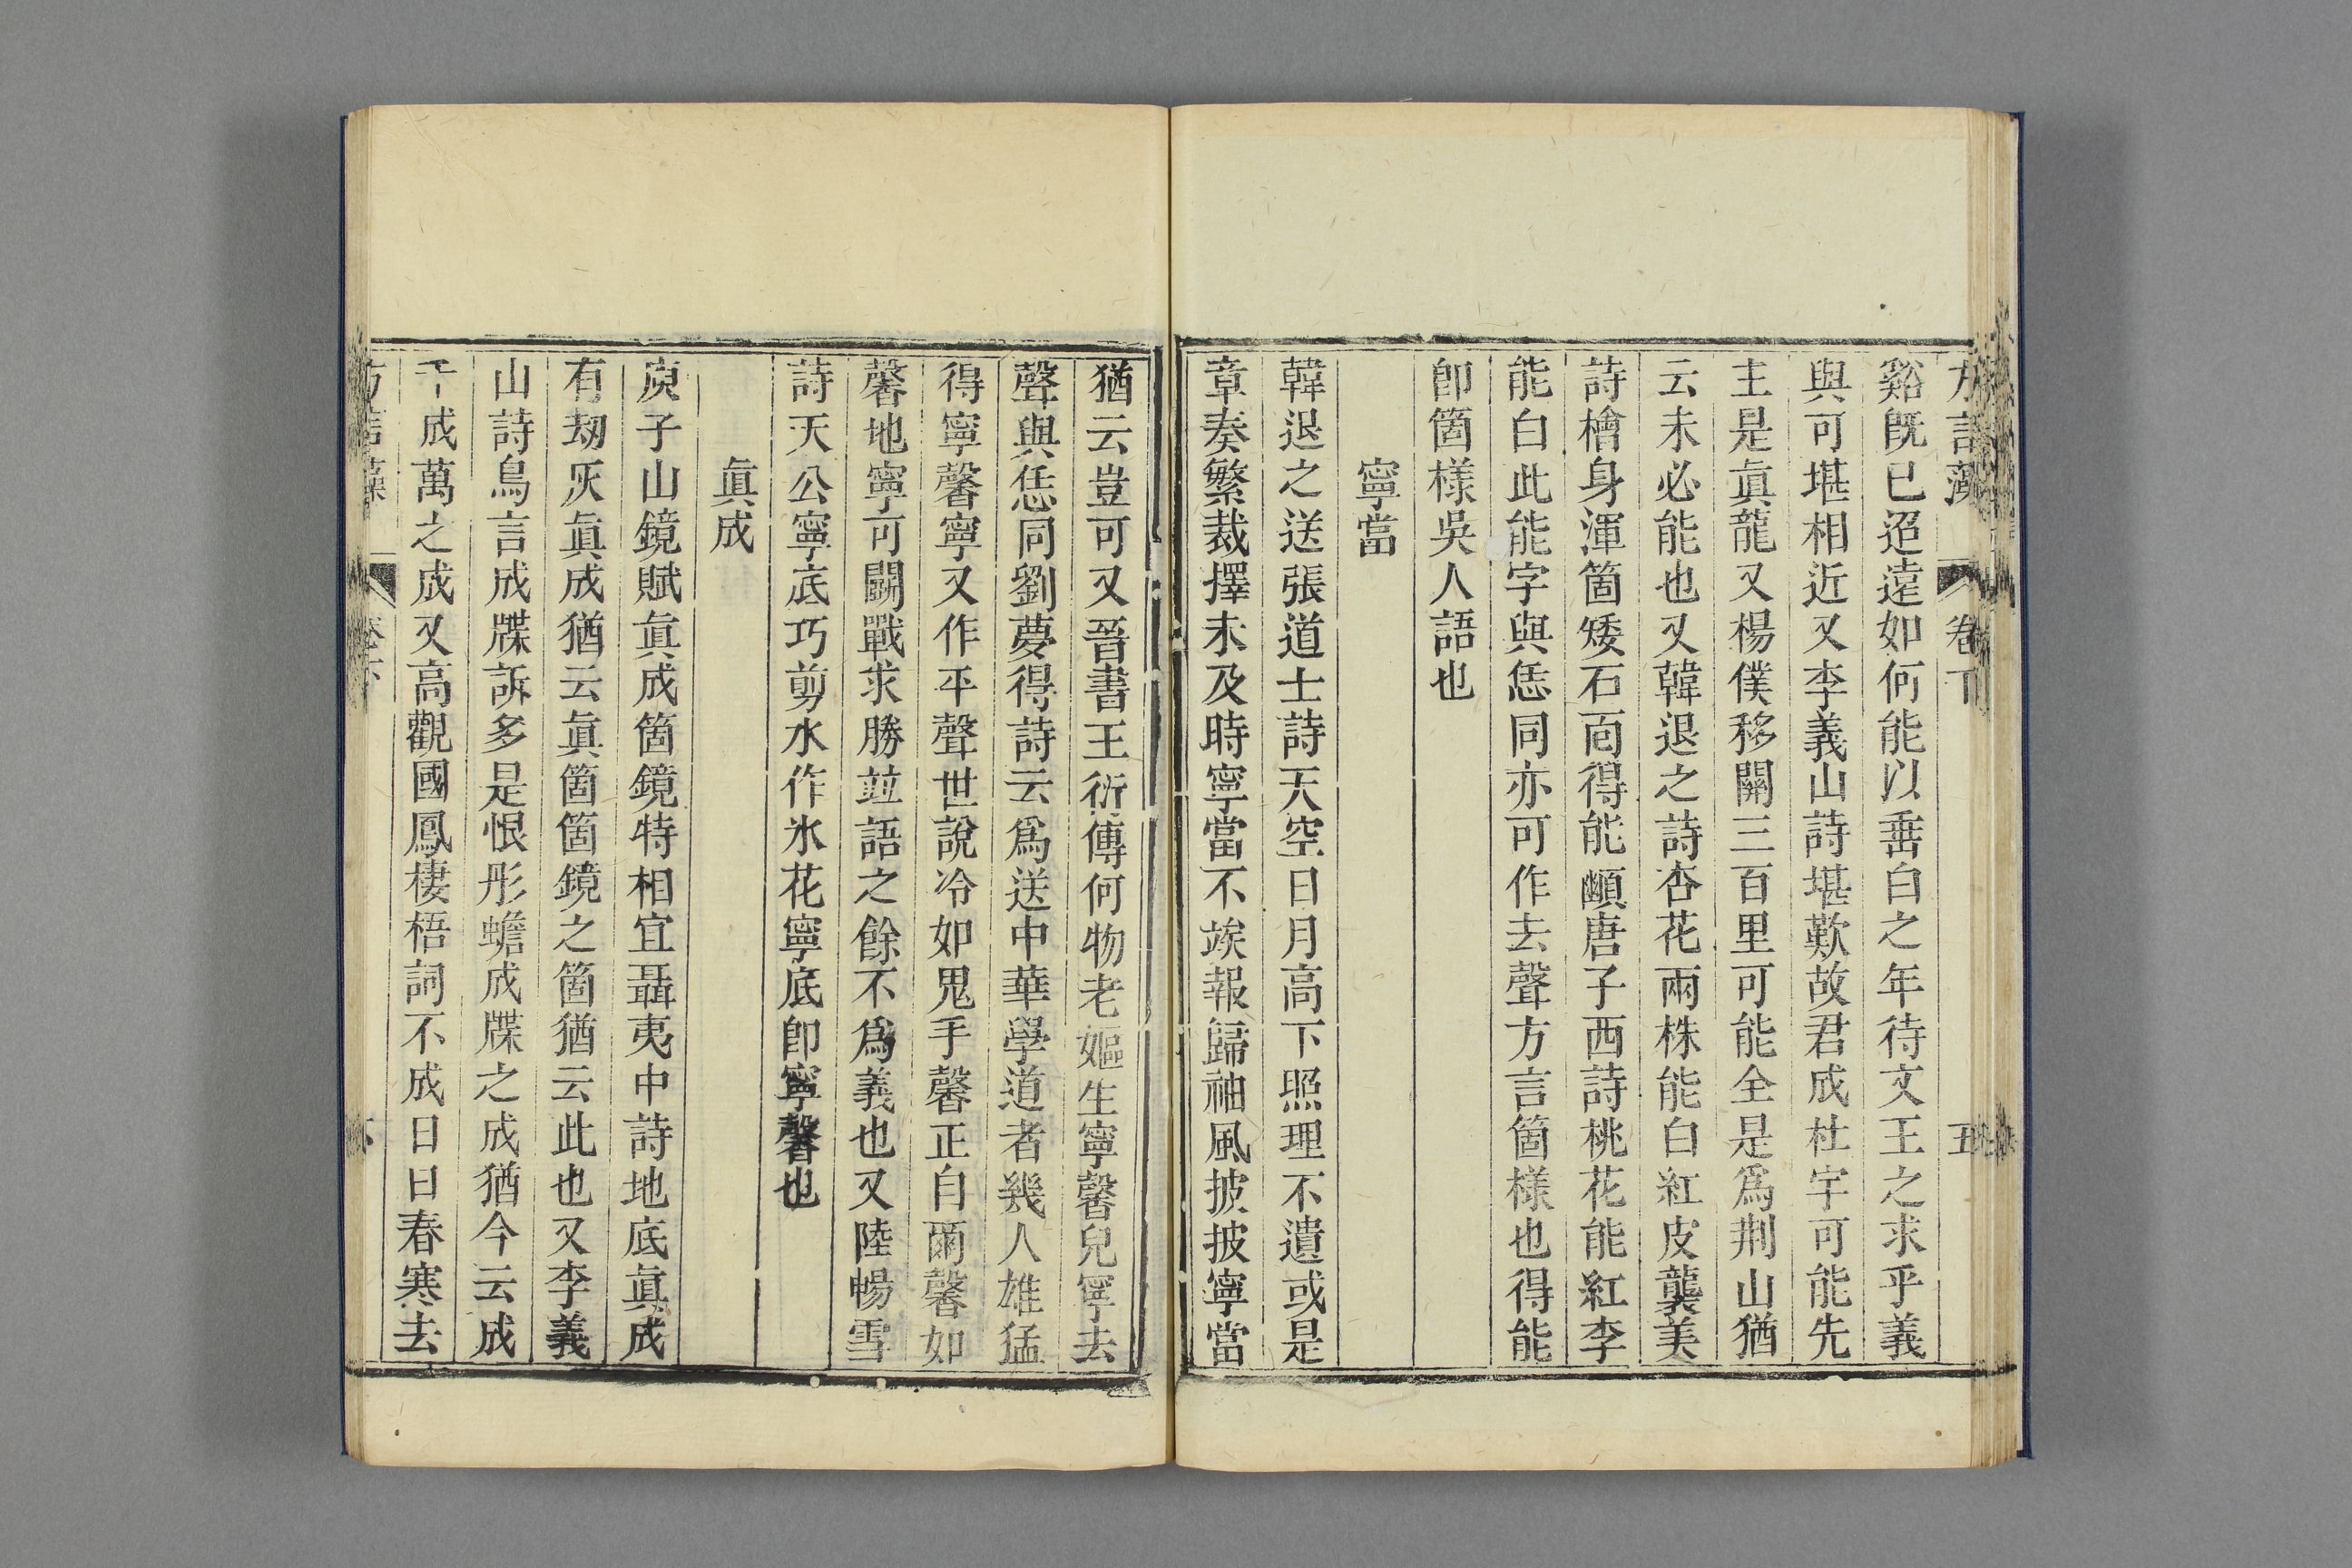 方言藻 卷下 五
谿旣已迢遠如何能以垂白之年待文王之求乎義
與可堪相近又李義山詩堪歎故君成杜宇可能先
主是眞龍又楊僕移關三百里可能全是爲荆山猶
云未必能也又韓退之詩杏花兩株能白紅皮襲美
詩檜身渾箇矮石面得能顱唐子西詩桃花能紅李
能白此能字與恁同亦可作去聲方言箇樣也得能
卽箇樣吳人語也
寧當
韓退之送張道士詩天空日月高下照理不遺或是
章奏繁裁擇未及時寧當不竢報歸袖風披披寧當
猶云豈可又晉書王衍傳何物老嫗生寧馨兒寧去
聲與恁同劉夢得詩云爲送中華學道者幾人雄猛
得寧馨寧又作平聲世說冷如鬼手馨正自爾馨如
馨地寧可鬭戰求勝竝語之餘不爲義也又陸暢雪
詩天公寧底巧剪水作氷花寧底卽寧馨也
眞成
庾子山鏡賦眞成箇鏡特相宜聶夷中詩地底眞成
有刼灰眞成猶云眞箇箇鏡之箇猶云此也又李義
山詩鳥言成牒訴多是恨彤蟾成牒之成猶今云成
千成萬之成又高觀國鳳棲梧詞不成日日春寒去
方言藻 卷下